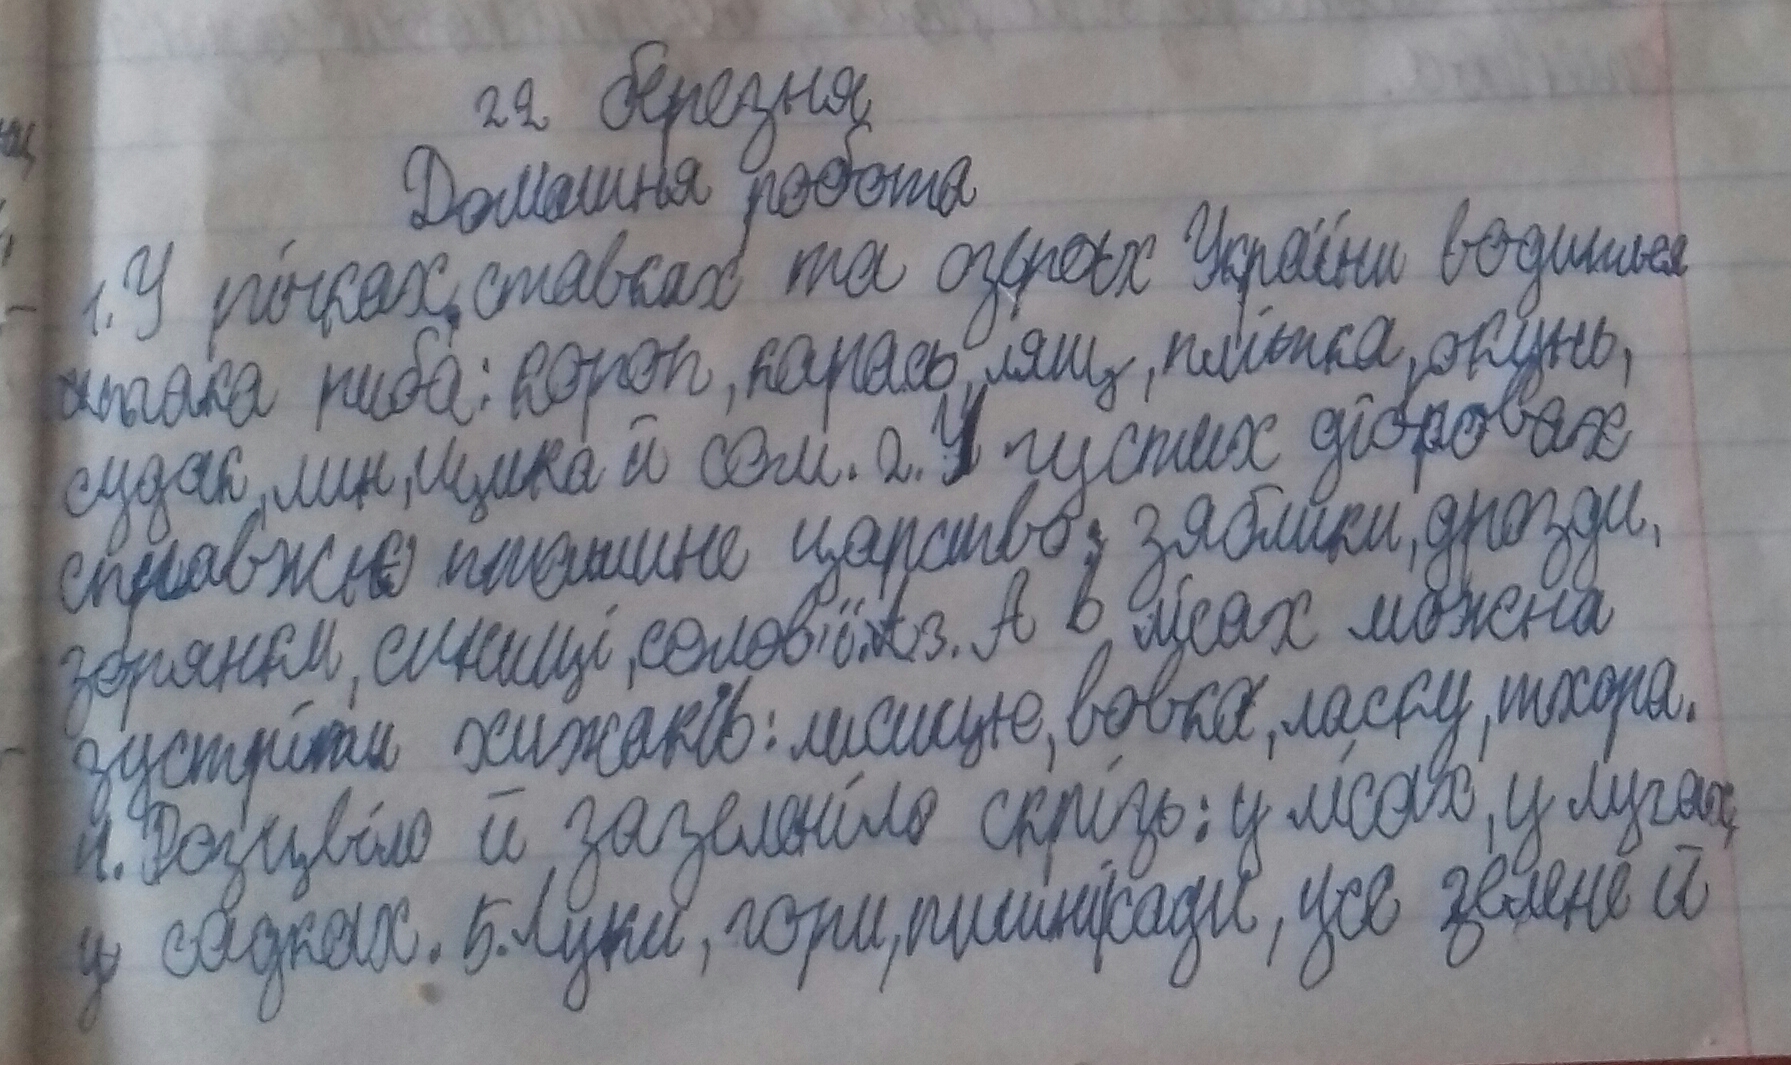 22 березня
Домашня робота
1. У річках, ставках та озерах України водиться
всяка риба: короп, карась, лящ, плітка, окунь,
судак, лин, щука й сом. 2. У густих дібровах
справжнє пташине царство: зяблики, дрозди,
зорянки, синиці, солов'ї. 3. А в лісах можна
зустріти хижаків: лисицю, вовка, ласку, тхора.
4. Розцвіло й зазеленіло скрізь: у лісах, у лугах,
у садках. 5. Луки, гори, пишні сади, усе зелене й